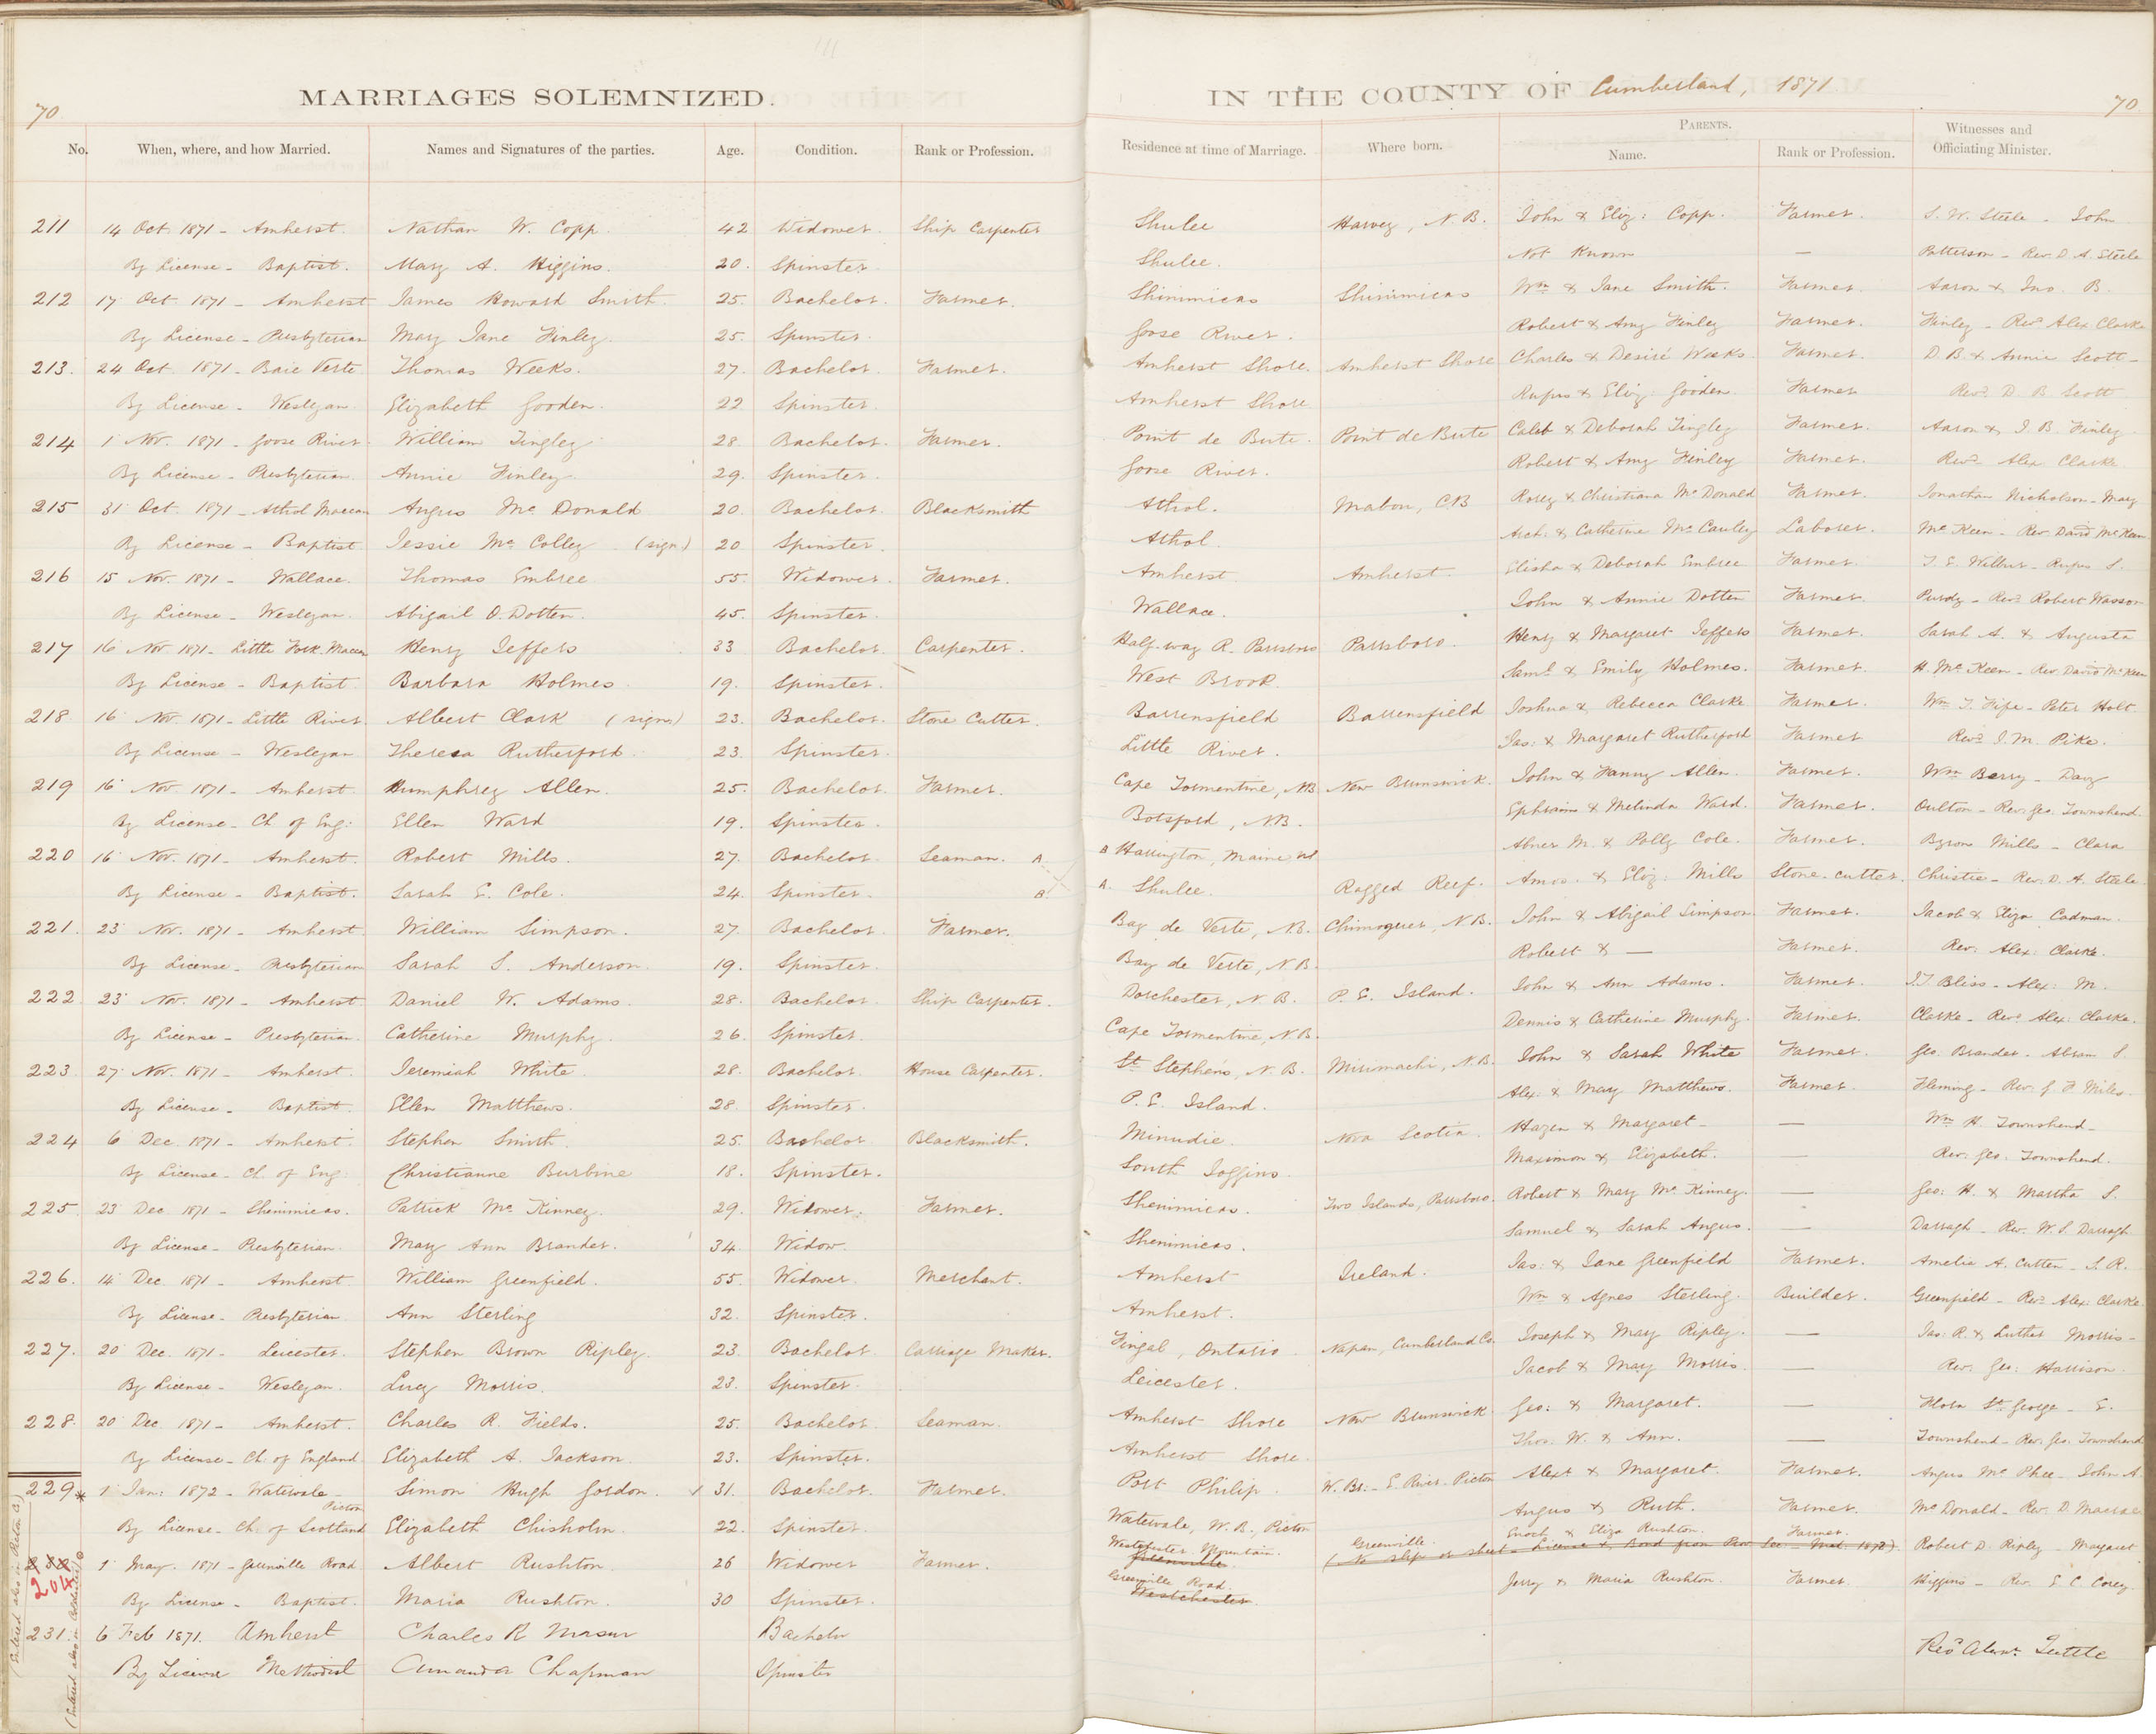 70
MARRIAGES SOLEMNIZED.
IN THE COUNTY OF Cumberland, 1871
70
No. When, where, and how Married. Names and Signatures of the parties. Age. Condition. Rank or Profession. Residence at time of Marriage. Where born. PARENTS. Name. Rank or Profession. Witnesses and Officiating Minister.
211 14 Oct. 1871 - Amherst. Nathan W. Copp. 42 Widower. Ship Carpenter Shulee Harvey, N.B. John & Eliz: Copp. Farmer. S. W. Steele - John
By License - Baptist. Mary A. Higgins. 20. Spinster. Shulee. Not Known — Patterson - Rev. D. A. Steele
212 17 Oct. 1871 - Amherst James Howard Smith. 25. Bachelor. Farmer. Shinimicas Shinimicas Wm & Jane Smith. Farmer. Aaron & Jno. B.
By License - Presbyterian Mary Jane Finley. 25. Spinster. Goose River. Robert & Amy Finley Farmer. Finley - Revd Alex Clarke
213. 24 Oct. 1871 - Baie Verte Thomas Weeks. 27. Bachelor. Farmer. Amherst Shore. Amherst Shore Charles & Desiré Weeks. Farmer. D. B. & Annie Scott -
By License - Wesleyan. Elizabeth Gooden. 22. Spinster. Amherst Shore Rufus & Eliz: Gooden. Farmer Revd D. B. Scott
214 1 Nov. 1871 - Goose River William Tingley 28. Bachelor. Farmer. Point de Bute. Point de Bute Caleb & Deborah Tingley Farmer. Aaron & J. B. Finley
By License - Presbyterian. Annie Finley. 29. Spinster. Goose River. Robert & Amy Finley Farmer. Revd Alex Clarke
215 31 Oct. 1871 - Athol Maccan Angus Mc Donald 20. Bachelor. Blacksmith Athol. Mabou, C.B Rorey & Christiana McDonald Farmer. Jonathan Nicholson - Mary
By License - Baptist Jessie Mc Colley (sign) 20 Spinster. Athol. Arch: & Catherine McCauley Laborer. McKeen - Rev. David McKeen
216 15 Nov. 1871 - Wallace. Thomas Embree 55. Widower. Farmer. Amherst. Amherst. Elisha & Deborah Embree Farmer. T. E. Wilbur - Rufus S.
By License - Wesleyan. Abigail O. Dotten. 45. Spinster. Wallace. John & Annie Dotten Farmer. Purdy - Revd Robert Wasson
217 16 Nov 1871 - Little Fork Maccan Henry Jeffers 33 Bachelor. Carpenter. Half-way R. Parrsboro Parrsboro. Henry & Margaret Jeffers Farmer. Sarah A. & Augusta
By License - Baptist. Barbara Holmes 19. Spinster. West Brook. Saml & Emily Holmes. Farmer. H. McKeen - Rev. David McKeen
218. 16 Nov. 1871 - Little River. Albert Clark (sign) 23. Bachelor. Stone Cutter. Barrensfield Barrensfield Joshua & Rebecca Clarke Farmer. Wm T. Fife - Peter Holt
By License - Wesleyan Theresa Rutherford 23. Spinster. Little River. Jas: & Margaret Rutherford Farmer Revd J. M. Pike.
219 16 Nov 1871 - Amherst. Humphrey Allen. 25. Bachelor. Farmer. Cape Tormentine, NB. New Brunswick. John & Fanny Allen. Farmer. Wm Berry - Davy
By License - Ch of Eng: Ellen Ward 19. Spinster. Botsford, N.B. Ephraim & Melinda Ward. Farmer. Oulton - Rev. Geo. Townshend
220 16 Nov. 1871 - Amherst. Robert Mills. 27. Bachelor. Seaman. A B Harrington, Maine Abner M. & Polly Cole. Farmer. Byron Mills - Clara
By License - Baptist. Sarah E. Cole. 24. Spinster. B. A. Shulee. Ragged Reef. Amos. & Eliz: Mills Stone-cutter. Christie - Rev. D. A. Steele
221. 23 Nov. 1871 - Amherst William Simpson. 27. Bachelor. Farmer. Bay de Verte, N.B. Chimogues, N.B. John & Abigail Simpson. Farmer. Jacob & Eliza Cadman.
By License - Presbyterian Sarah S. Anderson. 19. Spinster. Bay de Verte, N.B. Robert & — Farmer. Rev. Alex: Clarke.
222. 23 Nov. 1871 - Amherst Daniel W. Adams. 28. Bachelor Ship Carpenter. Dorchester, N.B. P. E. Island. John & Ann Adams. Farmer. J. T. Bliss - Alex: M.
By License - Presbyterian. Catherine Murphy. 26. Spinster. Cape Tormentine, N.B. Dennis & Catherine Murphy. Farmer. Clarke - Revd Alex: Clarke.
223. 27 Nov. 1871 - Amherst. Jeremiah White. 28. Bachelor. House Carpenter. St Stephens, N.B. Mirimachi, N.B. John & Sarah White Farmer. Geo. Brander - Abram S.
By License - Baptist. Ellen Matthews. 28. Spinster. P. E. Island. Alex & Mary Matthews. Farmer. Fleming - Rev. G. F. Miles.
224 6 Dec. 1871 - Amherst. Stephen Smith. 25. Bachelor. Blacksmith. Minudie. Nova Scotia. Hazen & Margaret - — Wm H. Townshend -
By License - Ch. of Eng: Christianne Burbine 18. Spinster. South Joggins. Maximon & Elizabeth. — Rev. Geo. Townshend.
225. 23 Dec. 1871 - Shinimicas. Patrick Mc Kinney. 29. Widower. Farmer. Shenimicas. Two Islands, Parrsboro. Robert & Mary McKinney. — Geo: H. & Martha S.
By License - Presbyterian. Mary Ann Brander. 34. Widow. Shenimicas. Samuel & Sarah Angus. — Darragh - Rev. W. S. Darragh
226. 14 Dec. 1871 - Amherst William Greenfield. 55. Widower. Merchant. Amherst Ireland. Jas. & Jane Greenfield Farmer. Amelia A. Cutten - S. R.
By License - Presbyterian. Ann Sterling 32. Spinster. Amherst. Wm & Agnes Sterling. Builder. Greenfield - Revd Alex: Clarke
227. 20 Dec. 1871 - Leicester. Stephen Brown Ripley. 23. Bachelor. Carriage Maker. Fingal, Ontario Napan, Cumberland Co. Joseph & Mary Ripley. — Jas: R. & Luther Morris -
By License - Wesleyan. Lucy Morris. 23. Spinster. Leicester. Jacob & Mary Morris. — Rev. Geo: Harrison.
228. 20 Dec 1871 - Amherst. Charles R. Fields. 25. Bachelor. Seaman. Amherst Shore New Brunswick. Geo: & Margaret. — Flora St. George - E.
By License - Ch. of England Elizabeth A. Jackson. 23. Spinster. Amherst Shore. Thos. W. & Ann. — Townshend - Rev. Geo. Townshend
229 * 1 Jan: 1872 - Watervale - Pictou Simon Hugh Gordon. ✓ 31. Bachelor. Farmer. Port Philip. W. Br: - E. River - Pictou Alexr & Margaret. Farmer. Angus McPhee - John A.
By License - Ch. of Scotland Elizabeth Chisholm. 22. Spinster. Watervale, W.B., Pictou Angus & Ruth. Farmer. McDonald - Rev. D. Macrae
204 1 May. 1871 - Greenville Road Albert Rushton. 26 Widower Farmer. Westchester Mountain. Greenville Greenville. Enoch & Eliza Rushton. Farmer. Robert D. Ripley - Margaret
By License - Baptist. Maria Rushton. 30 Spinster. Greenville Road. Westchester. Jerry & Maria Rushton. Farmer Higgins - Rev. E. C. Corey
231. 6 Feb 1871. Amherst Charles R Bachelor
By License Methodist Amanda Chapman Spinster Revd Alexr. Tuttle
(Entered also in Pictou Co)
(Entered also in